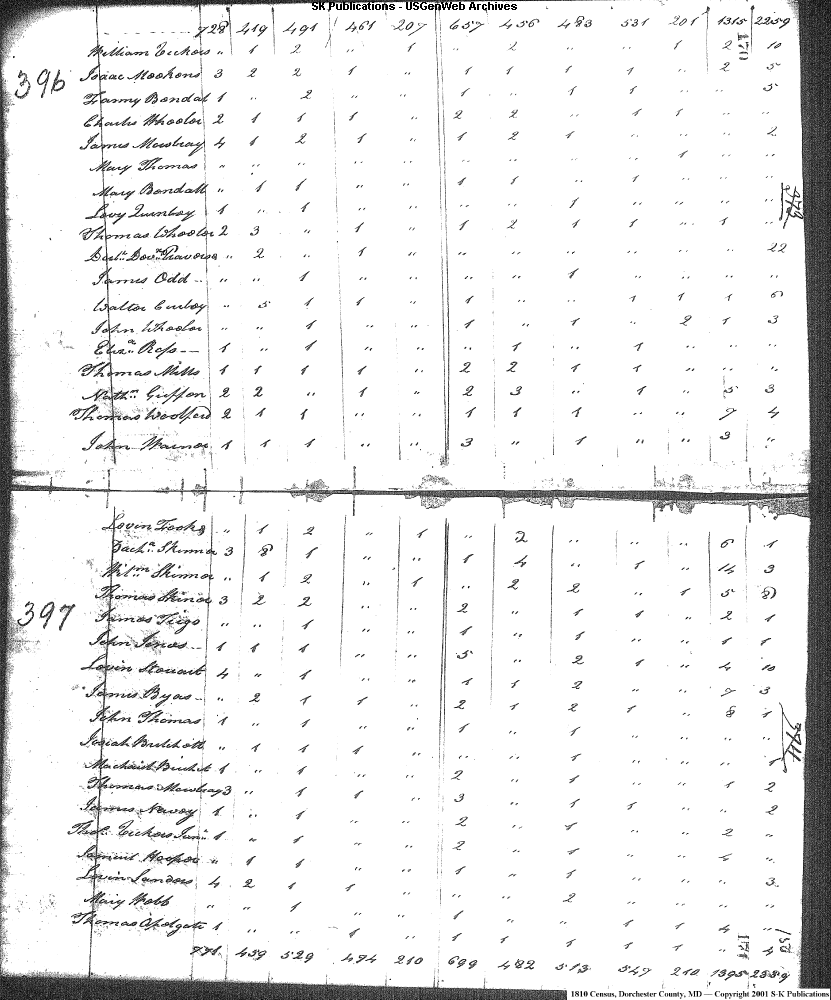 SK Publications - USGenWeb Archives
728 419 491 461 207 657 456 483 531 201 1315 2259
170
396
William Vickers " 1 2 " 1 " 2 " " 1 2 10
Isaac Meekens 3 2 2 1 " 1 1 1 1 " 2 5
Fanny Bendal 1 " 2 " " 1 " 1 1 " " 5
Charles Wheeler 2 1 1 1 " 2 2 " 1 1 " "
James Mowbray 4 1 2 1 " 1 2 1 " " " 2
Mary Thomas " " " " " " " " " 1 " "
Mary Bendall " 1 1 " " 1 1 " 1 " " "
Levy Quinby 1 " 1 " " " " 1 " " " "
Thomas Wheeler 2 3 " 1 " 1 2 1 1 " 1 "
Travers " 2 " 1 " " " " " " " 22
James Odd " " 1 " " " " 1 " " " "
Walter " 5 1 1 " 1 " " 1 1 1 6
John Wheeler " " 1 " " 1 " 1 " 2 1 3
Eliza Ross 1 " 1 " " " 1 " 1 " " "
Thomas Mills 1 1 1 " " 2 2 1 1 " " "
Nathn. 2 2 " 1 " 2 3 " 1 " 5 3
Thomas Woolford 2 1 1 " " 1 1 1 " " 7 4
John Warner 1 1 1 " " 3 " 1 " " 3 "
397
Levin " 1 2 " 1 " 2 " " " 6 1
Zacha. Skinner 3 8 1 " " 1 4 " 1 " 14 3
Wilm Skinner " 1 2 " 1 " 2 2 " 1 5
Thomas Skinner 3 2 2 " " 2 " 1 1 " 2 1
James " " 1 " " 1 " 1 " " 1 1
John Jones 1 1 1 " " 5 " 2 1 " 4 10
Levin Stewart 4 " 1 " " 1 1 2 " " 7 3
James Byas " 2 1 1 " 2 1 2 1 " 8 1
John Thomas 1 " 1 " " 1 " 1 " " " "
Josiah " 1 1 1 " " " 1 " " " 1
1 " 1 " " 2 " 1 " " 1 2
Thomas Mowbray 3 " 1 1 " 3 " 1 1 " " 2
James 1 " 1 " " 2 " 1 " " 2 "
Vickers Junr. 1 " 1 " " 2 " 1 " "
Samuel Hooper " 1 1 " " 1 " 1 " " " 3
Levin Sanders 4 2 1 1 " " " 2 " " " "
Mary Webb " " 1 " " 1 " " 1 1 4
Thomas 1 " " 1 " 1 1 1 1 1 " 4
171
771 439 529 474 210 699 482 513 547 210 1395 2339
1810 Census, Dorchester County, MD — Copyright 2001 S-K Publications